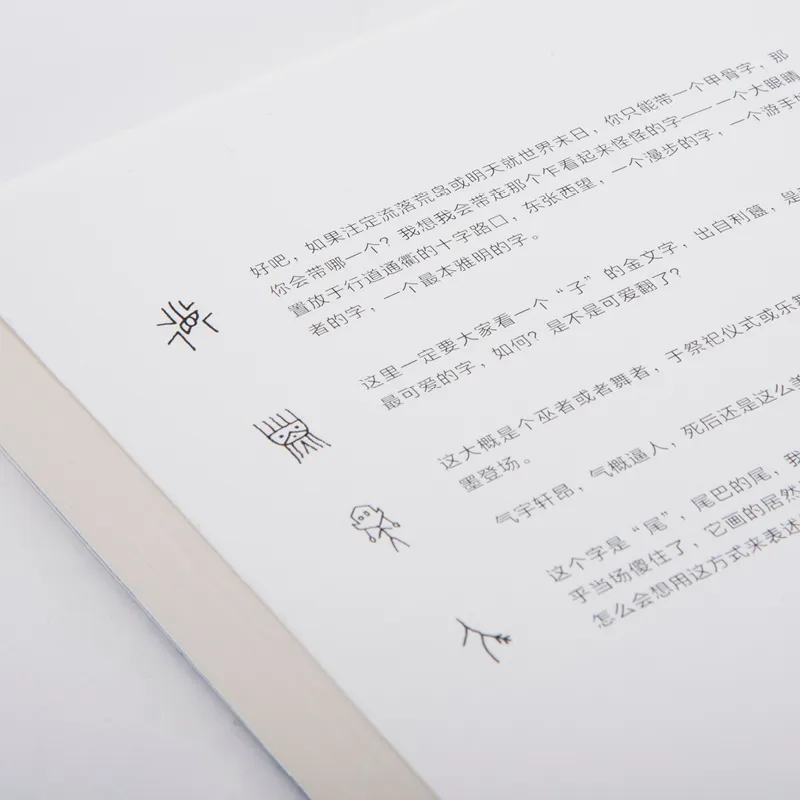 好吧，如果注定流落荒岛或明天就世界末日，你只能带一个甲骨字，那
你会带哪一个？我想我会带走那个乍看起来怪怪的字——一个大眼睛
置放于行道通衢的十字路口，东张西望，一个漫步的字，一个游手
者的字，一个最本雅明的字。
这里一定要大家看一个“子”的金文字，出自利簋，是
最可爱的字，如何？是不是可爱翻了？
这大概是个巫者或者舞者，于祭祀仪式或乐舞
墨登场。
气宇轩昂，气概逼人，死后还是这么
这个字是“尾”，尾巴的尾，我
乎当场傻住了，它画的居然
怎么会想用这方式来表述